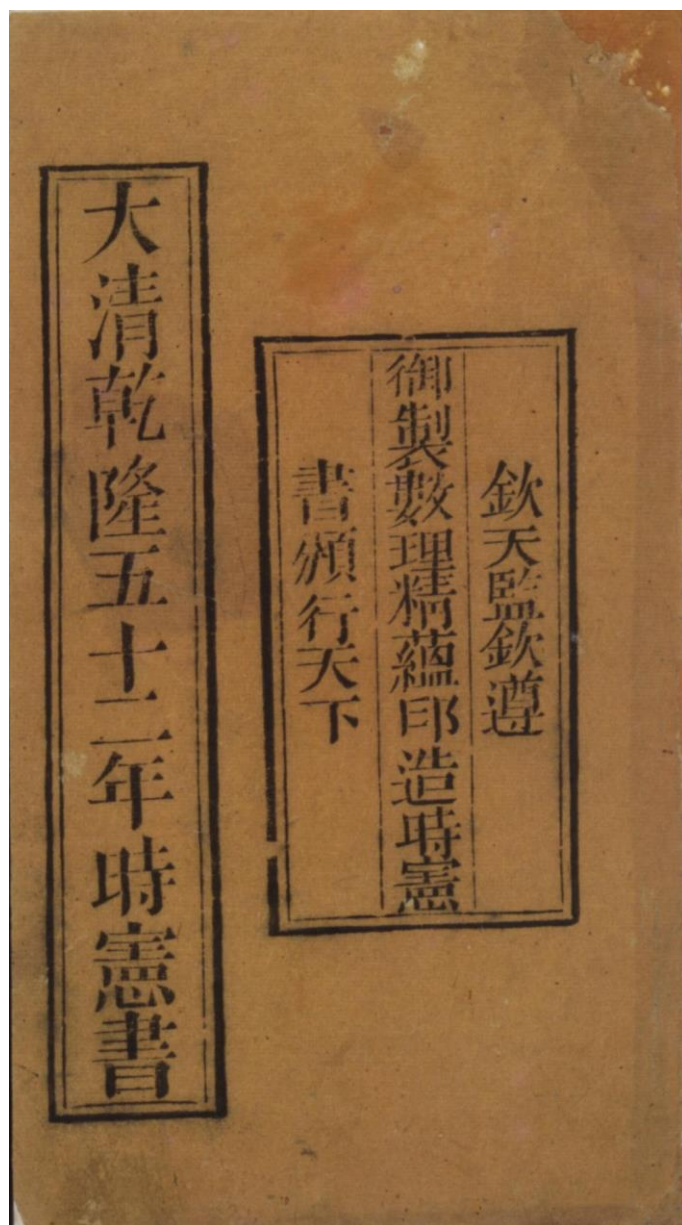 欽天監欽遵
御製數理精蘊印造時憲
書頒行天下
大清乾隆五十二年時憲書